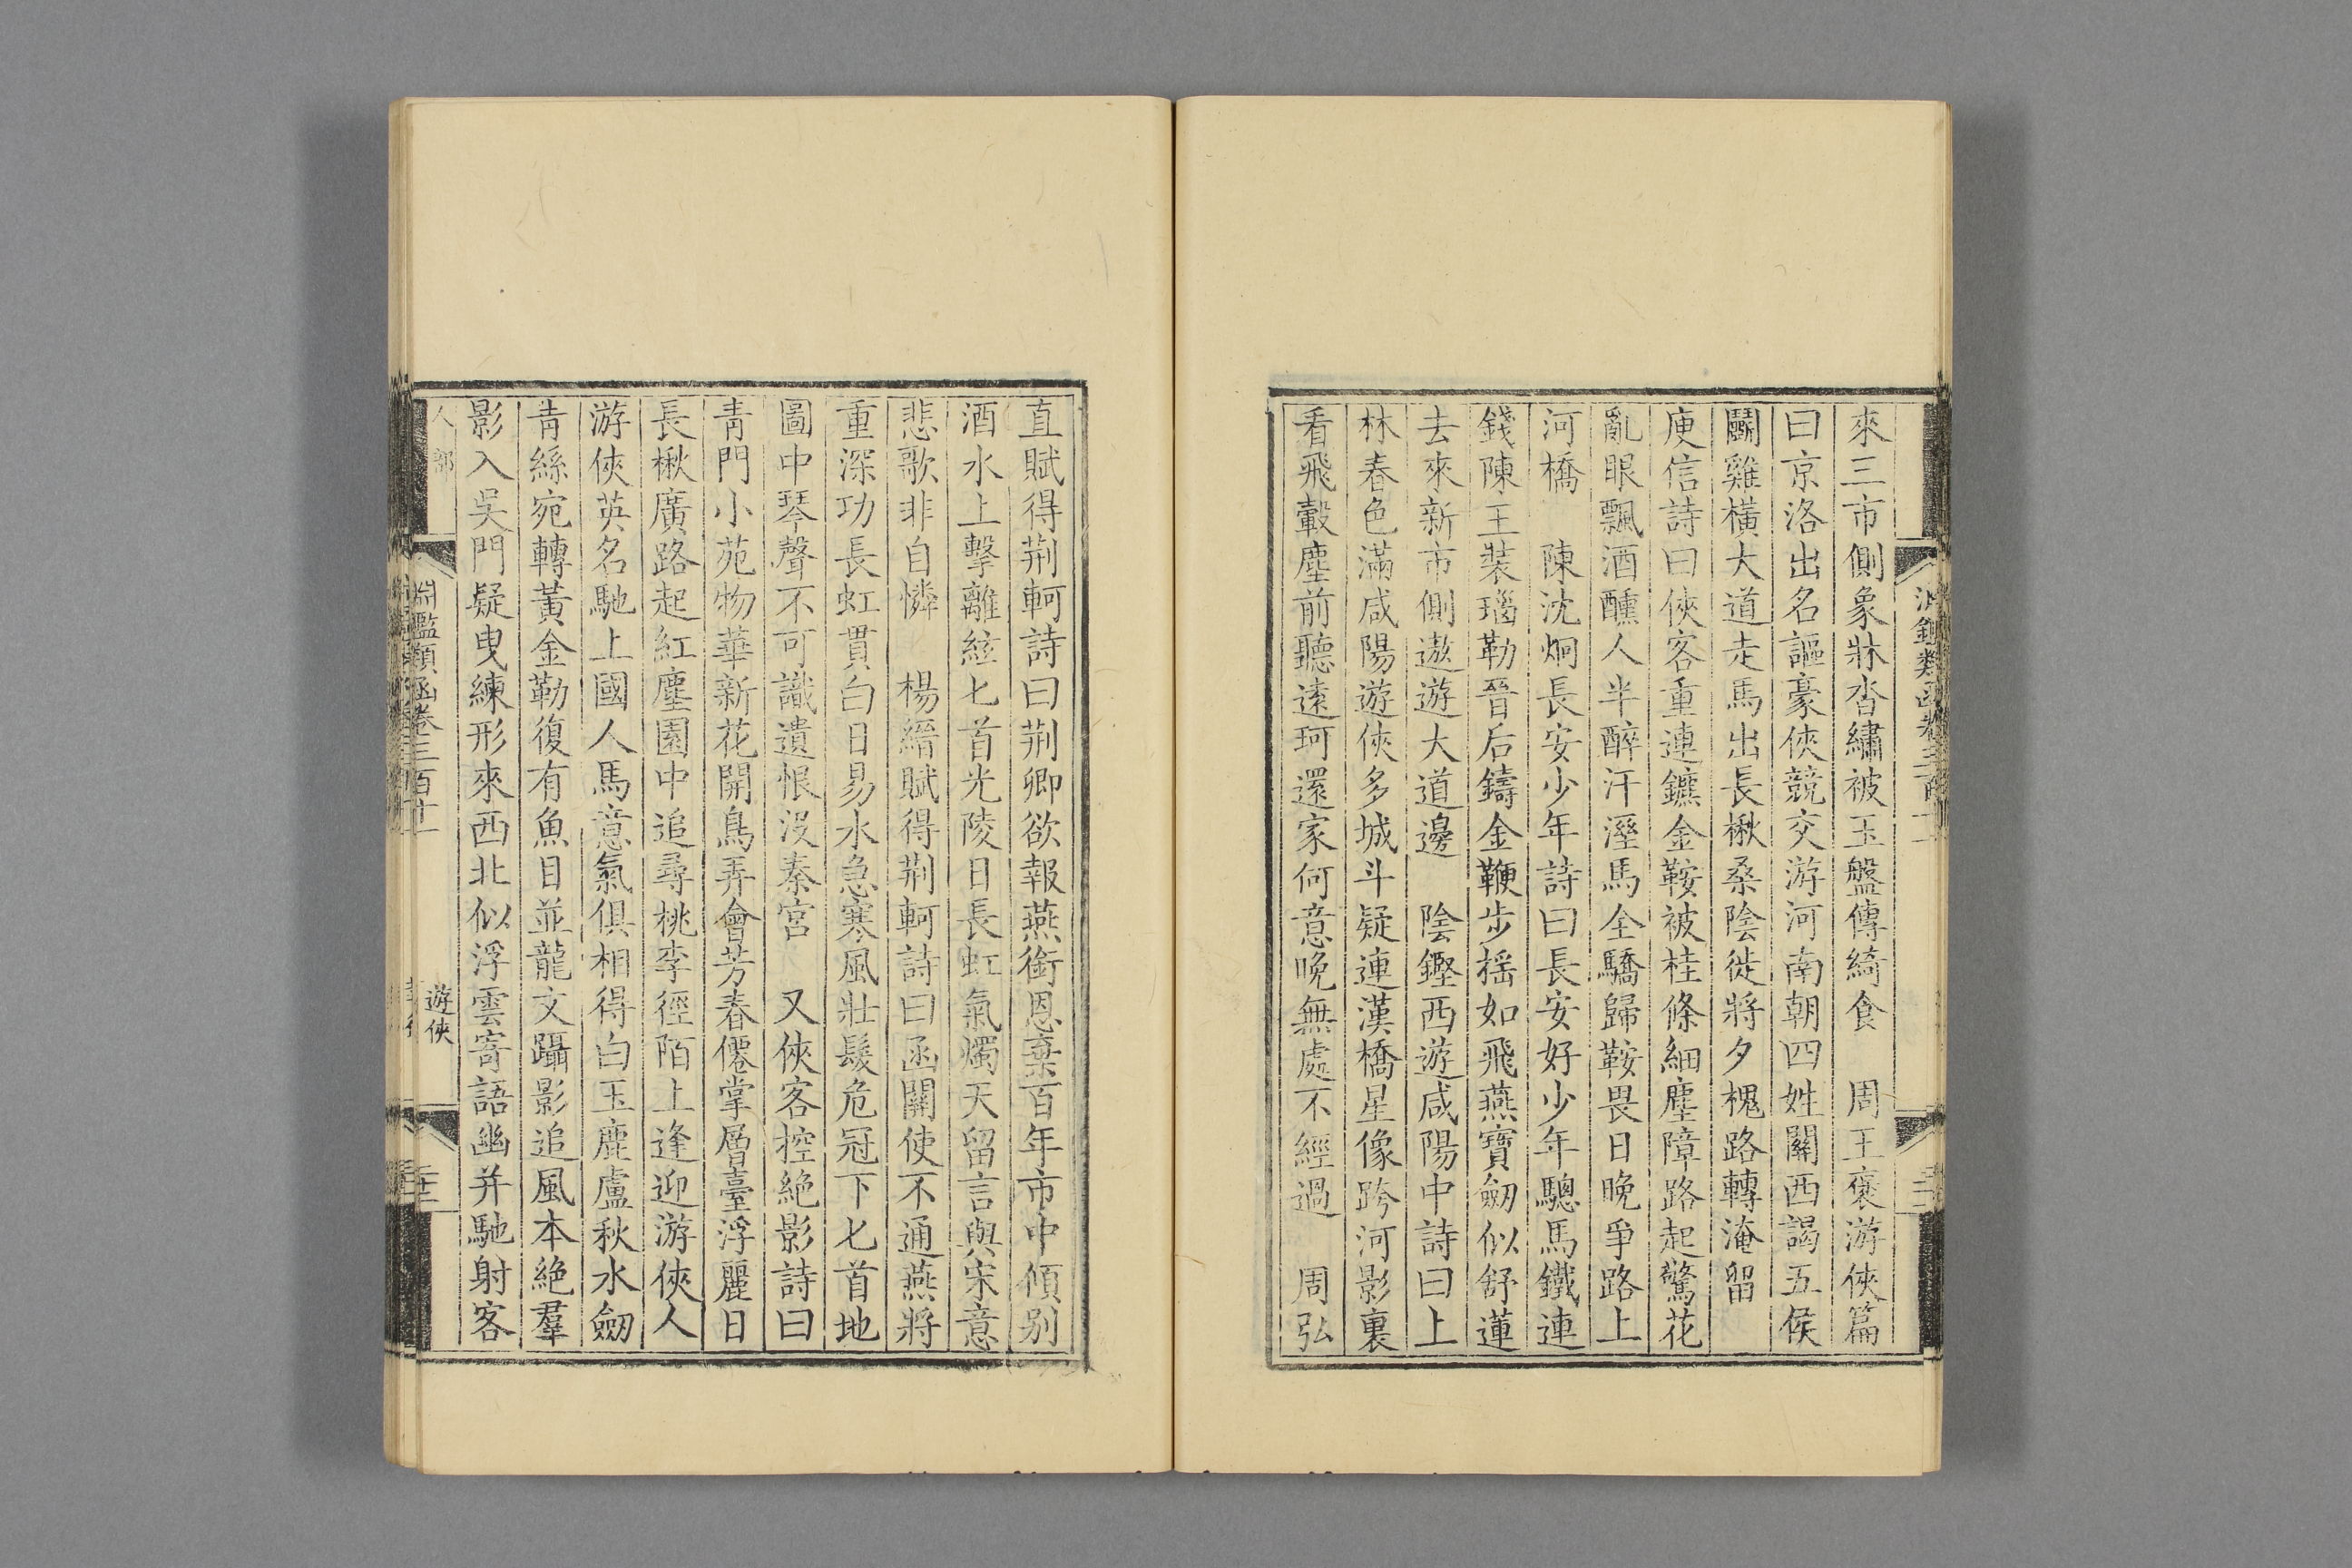 來三市側象牀沓繡被玉盤傳綺食　周王褒游俠篇
曰京洛出名謳豪俠競交游河南朝四姓關西謁五侯
鬭雞橫大道走馬出長楸桑陰徙將夕槐路轉淹留
庾信詩曰俠客重連鑣金鞍被桂條細塵障路起驚花
亂眼飄酒醺人半醉汗溼馬全驕歸鞍畏日晚爭路上
河橋　陳沈炯長安少年詩曰長安好少年驄馬鐵連
錢陳王裝瑙勒晉后鑄金鞭步搖如飛燕寶劒似舒蓮
去來新市側遨遊大道邊　陰鏗西遊咸陽中詩曰上
林春色滿咸陽遊俠多城斗疑連漢橋星像跨河影裏
看飛轂塵前聽遠珂還家何意晚無處不經過　周弘
直賦得荆軻詩曰荆卿欲報燕銜恩棄百年市中傾别
酒水上擊離絃匕首光陵日長虹氣燭天留言與宋意
悲歌非自憐　楊縉賦得荆軻詩曰函關使不通燕將
重深功長虹貫白日易水急寒風壯髮危冠下匕首地
圖中琴聲不可識遺恨沒秦宮　又俠客控絶影詩曰
青門小苑物華新花開鳥弄會芳春僊掌層臺浮麗日
長楸廣路起紅塵園中追尋桃李徑陌上逢迎游俠人
游俠英名馳上國人馬意氣俱相得白玉鹿盧秋水劒
青絲宛轉黃金勒復有魚目並龍文躡影追風本絶羣
影入吳門疑曳練形來西北似浮雲寄語幽并馳射客
人部
淵鑑類函卷三百十一
遊俠